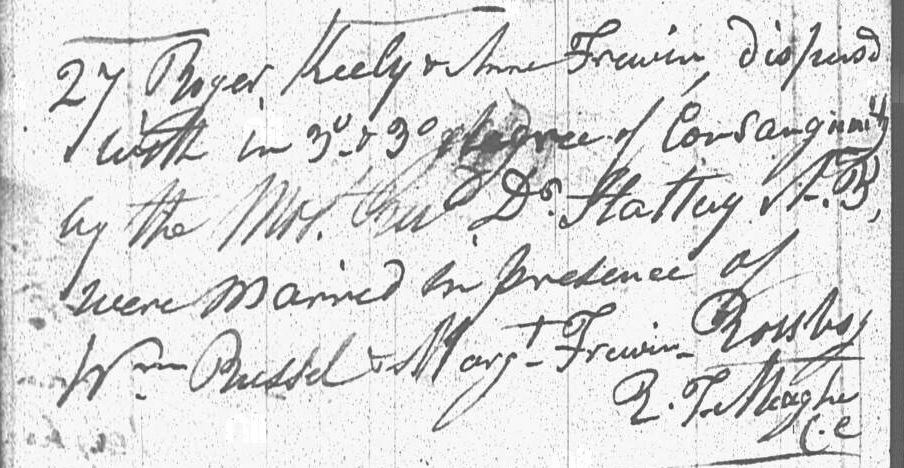 27 Roger Keely & Anne Frewin dispensd
with in 3º & 3º degree of Consanguinity
by the Most Revd Dr. Slattery A.B,
were Married in presence of
Wm Russel & Margt Frewin
R. F. Meagher
C.C